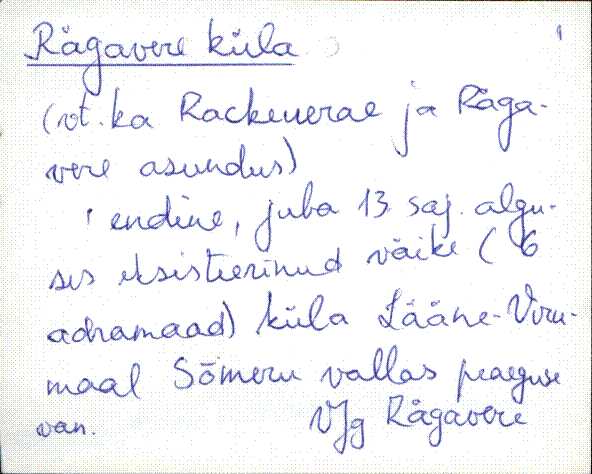 Rägavere küla 1
(vt. ka Rackeuerae ja Räga-
vere asundus)
endine, juba 13. saj. algu-
ses eksisteerinud väike (6
adramaad) küla Lääne-Viru-
maal Sõmeru vallas praeguse
van. VJg Rägavere